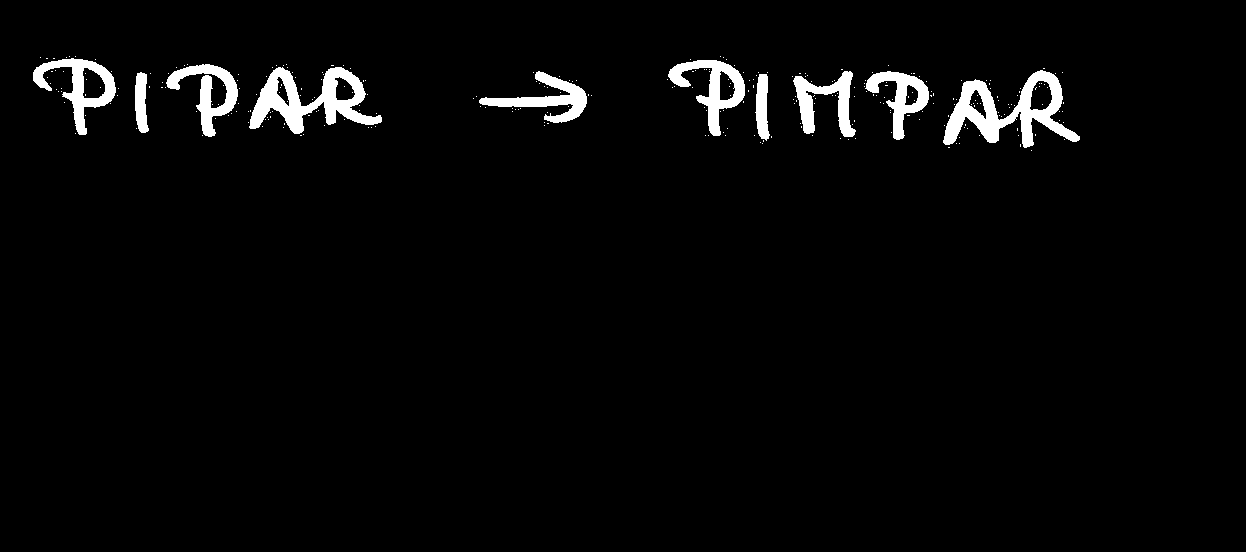 PIPAR → PIMPAR